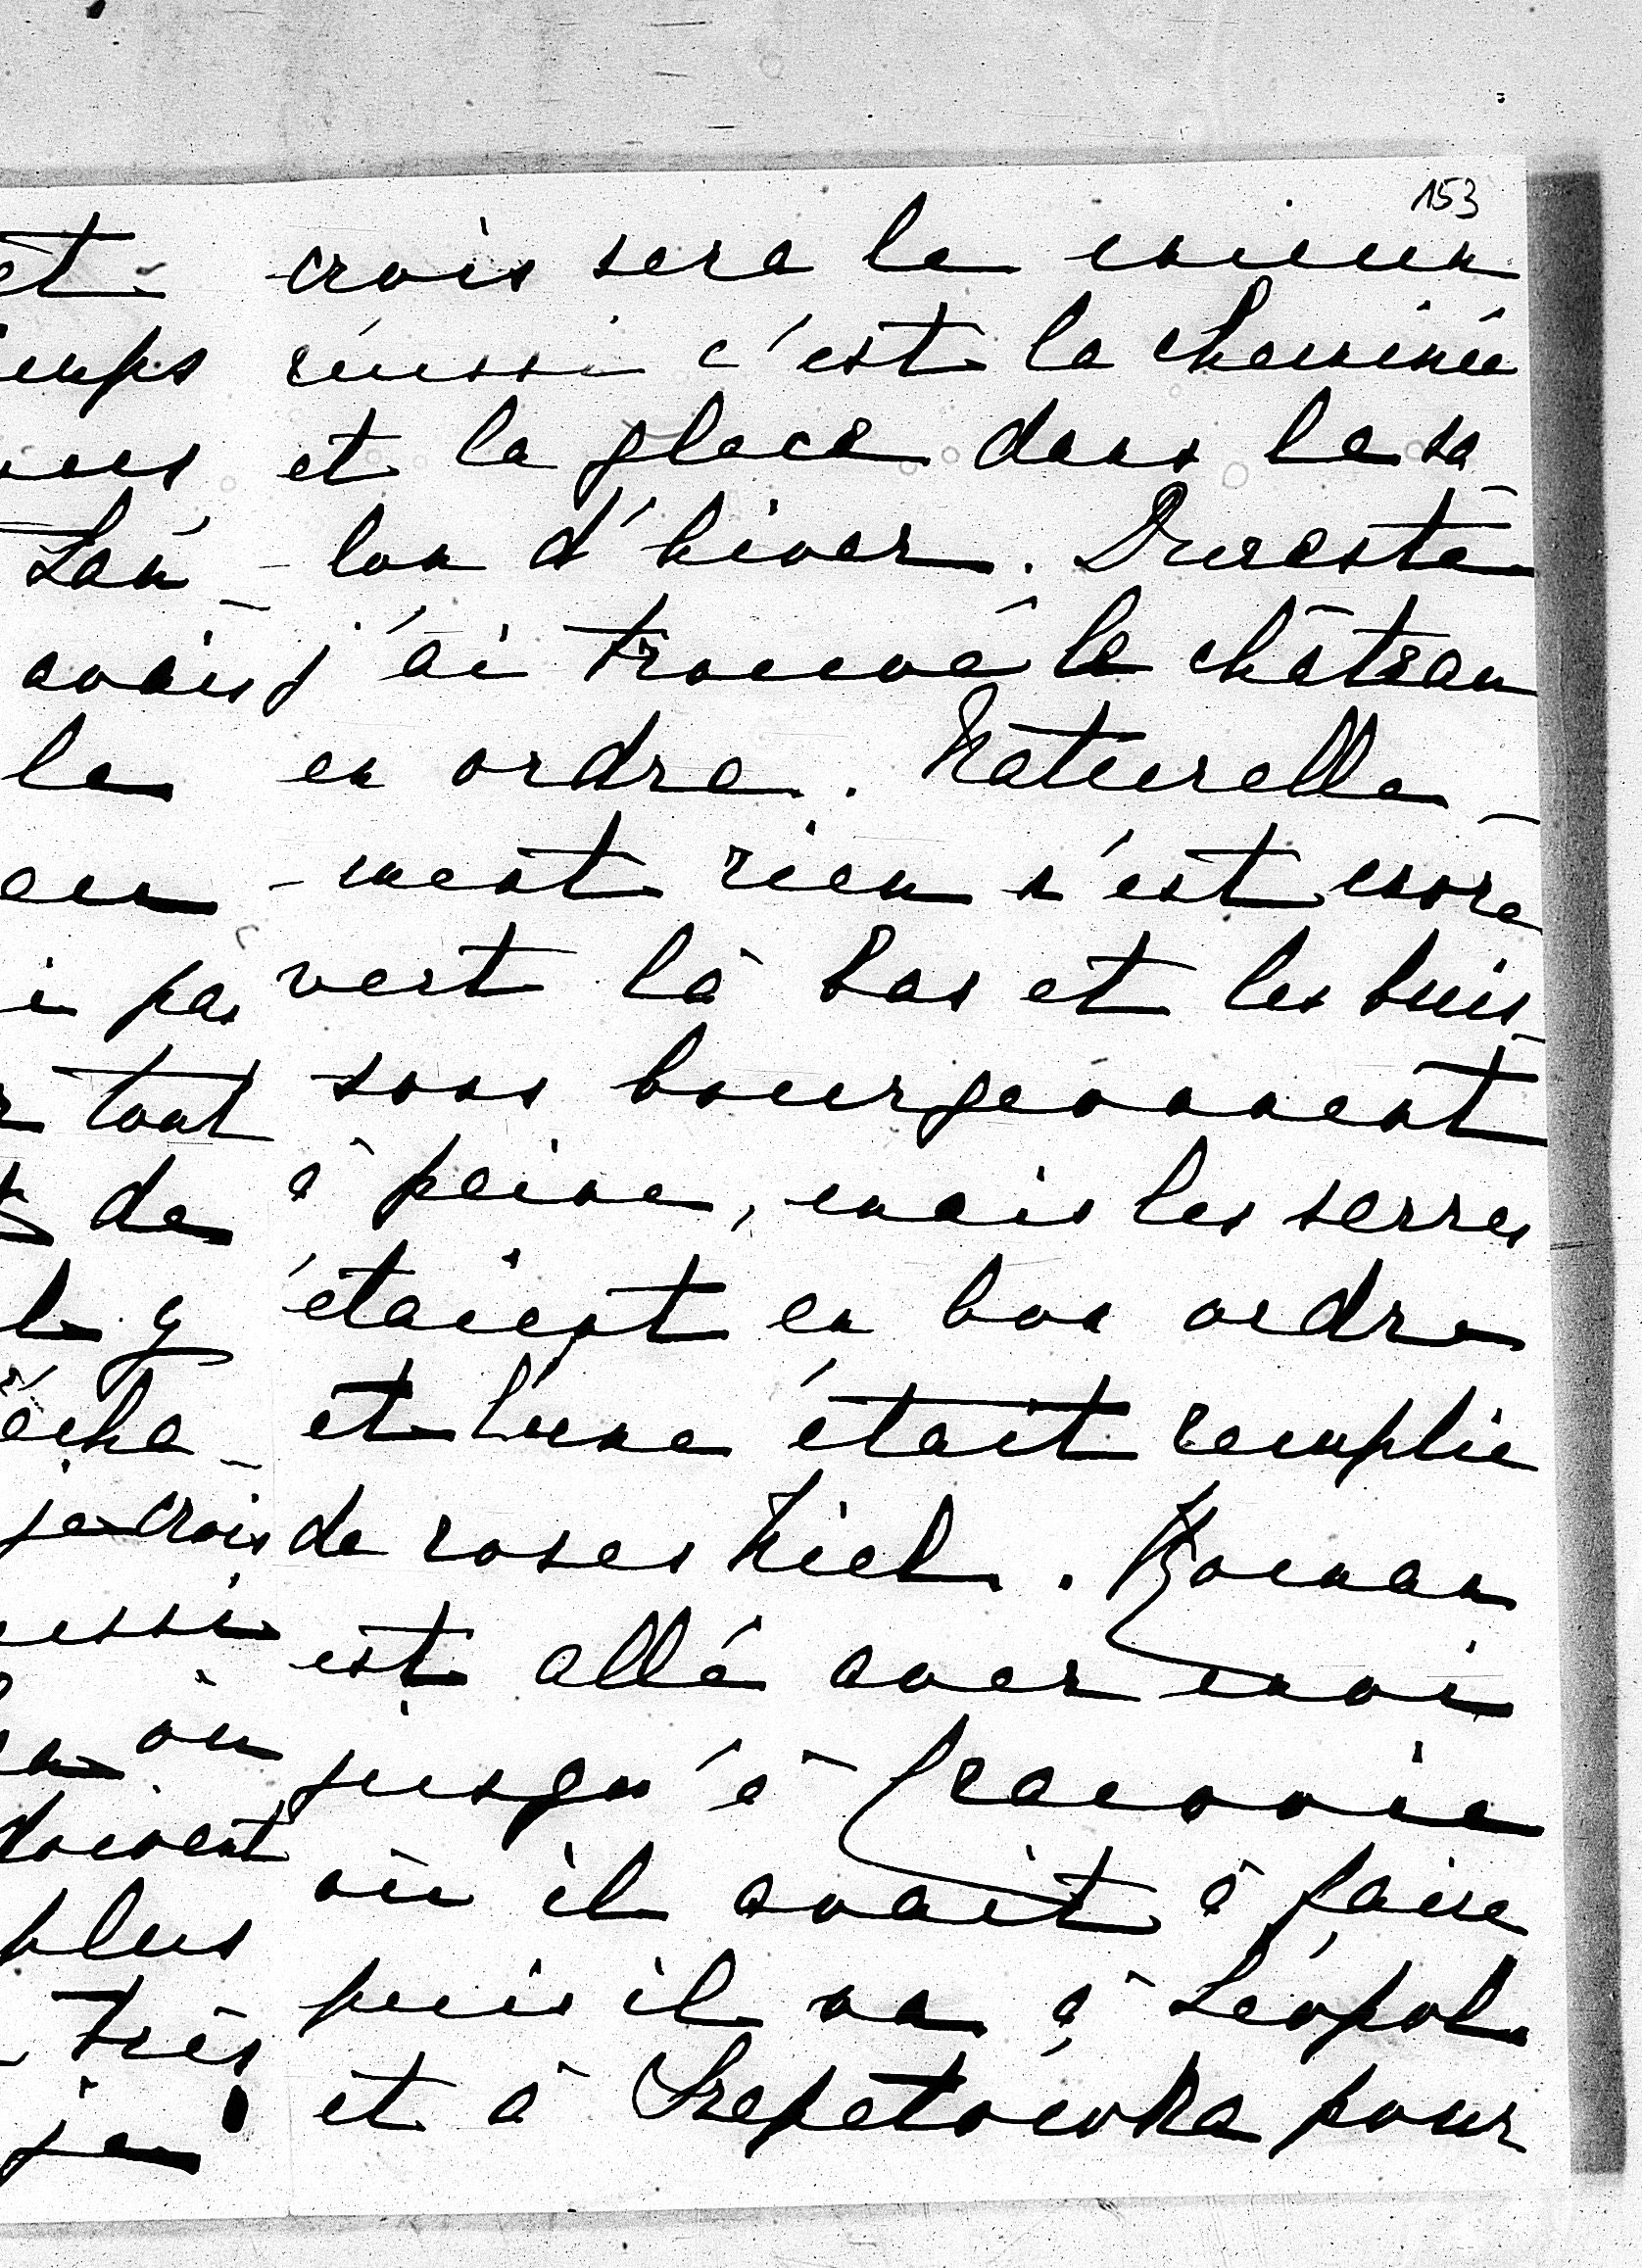 153
et
emps
Lan-
avais
le
en
i pas
r tout
de
y
je crois
ussi
où
doivent
plus
très
je
crois sera le mieux
réussi c'est la cheminée
et la glace dans le sa-
-lon d'hiver. Dureste
j'ai trouvé le château
en ordre. Naturelle-
-ment rien n'est encore
vert là bas et les buis-
sons bourgeonnent
à peine, mais les serres
étaient en bon ordre
et l'une était remplie
de roses Niel. Roman
est allé avec moi
jusqu'à Cracovie
où il avait à faire
puis il va à Léopol
et à Szepetówka pour